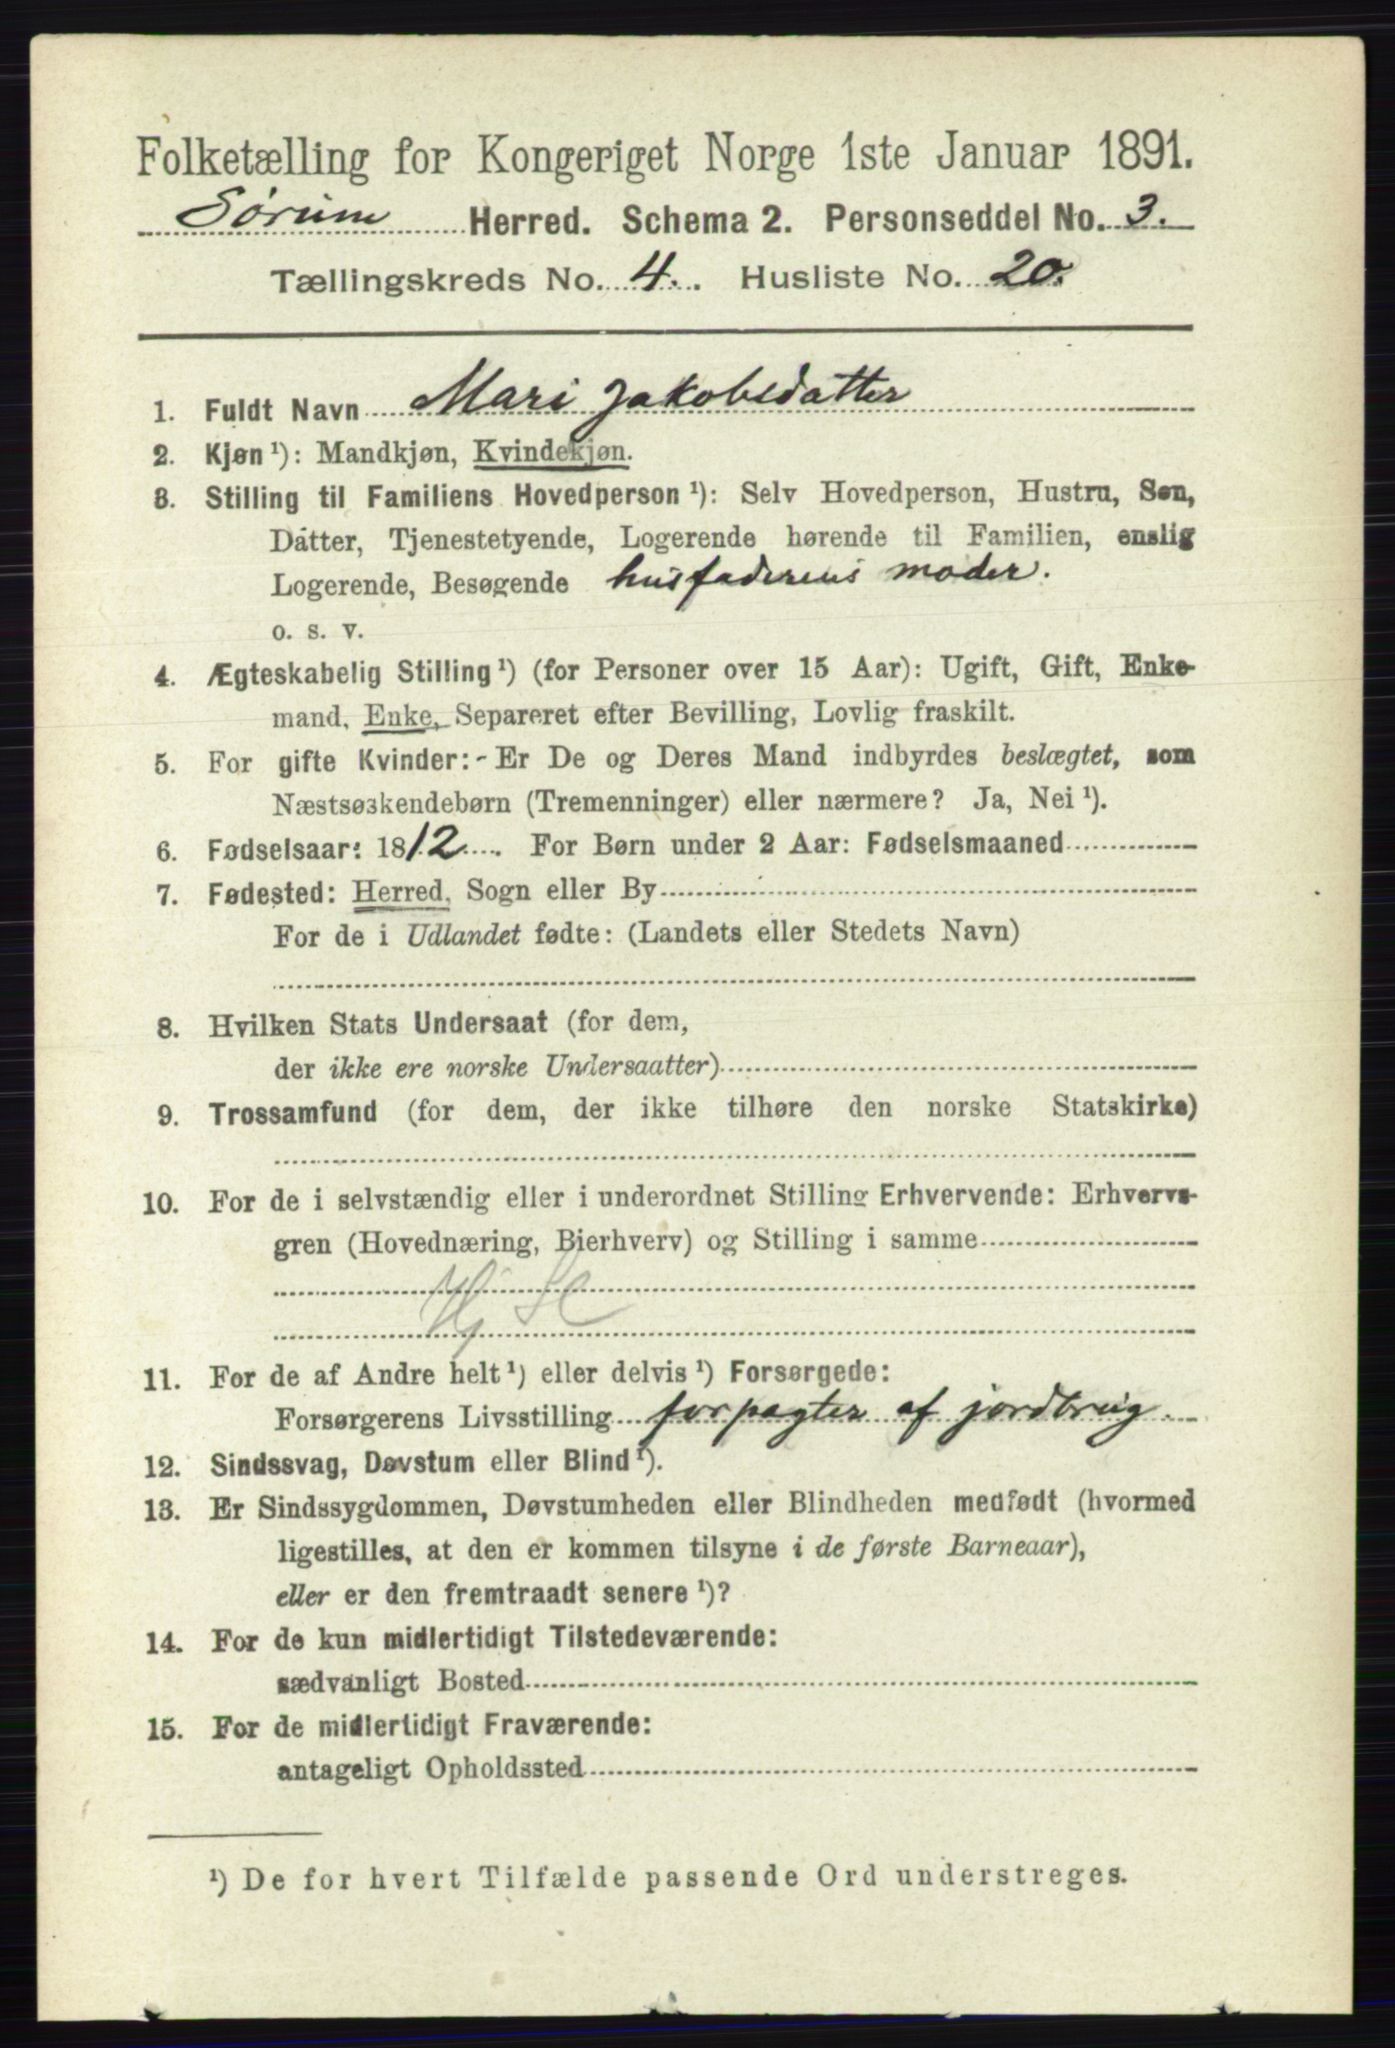 Folketælling for Kongeriget Norge 1ste Januar 1891.
Sørum Herred. Schema 2. Personseddel No. 3.
Tællingskreds No. 4. Husliste No. 20.
1. Fuldt Navn Mari Jakobsdatter
2. Kjøn ¹): Mandkjøn, Kvindekjøn.
3. Stilling til Familiens Hovedperson ¹): Selv Hovedperson, Hustru, Søn,
Datter, Tjenestetyende, Logerende hørende til Familien, enslig
Logerende, Besøgende husfaderens moder.
o. s. v.
4. Ægteskabelig Stilling ¹) (for Personer over 15 Aar): Ugift, Gift, Enke-
mand, Enke, Separeret efter Bevilling, Lovlig fraskilt.
5. For gifte Kvinder: Er De og Deres Mand indbyrdes beslægtet, som
Næstsøskendebørn (Tremenninger) eller nærmere? Ja, Nei ¹).
6. Fødselsaar: 1812. For Børn under 2 Aar: Fødselsmaaned
7. Fødested: Herred, Sogn eller By
For de i Udlandet fødte: (Landets eller Stedets Navn)
8. Hvilken Stats Undersaat (for dem,
der ikke ere norske Undersaatter)
9. Trossamfund (for dem, der ikke tilhøre den norske Statskirke)
10. For de i selvstændig eller i underordnet Stilling Erhvervende: Erhvervs-
gren (Hovednæring, Bierhverv) og Stilling i samme
11. For de af Andre helt ¹) eller delvis ¹) Forsørgede:
Forsørgerens Livsstilling forpagter af jordbrug.
12. Sindssvag, Døvstum eller Blind ¹).
13. Er Sindssygdommen, Døvstumheden eller Blindheden medfødt (hvormed
ligestilles, at den er kommen tilsyne i de første Barneaar),
eller er den fremtraadt senere ¹)?
14. For de kun midlertidigt Tilstedeværende:
sædvanligt Bosted
15. For de midlertidigt Fraværende:
antageligt Opholdssted
¹) De for hvert Tilfælde passende Ord understreges.